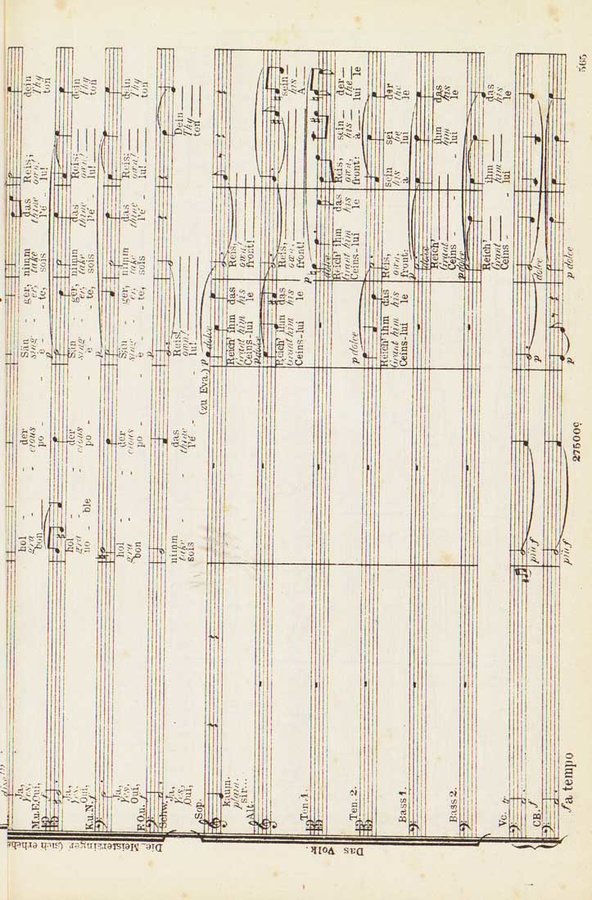 Die Meistersinger (sich erhebe
M.u.E.
Ja, hol - - der Sän - - ger, nimm das Reis; dein
Yes, gra - - cious sing - - er, take thine own; Thy
Oui, bon - - po - - è - - te, sois l'é - lu! ton
K.u.N.
Ja, hol - - der Sän - - ger, nimm das Reis; dein
Yes, gra - - cious sing - - er, take thine own; Thy
Oui, no - ble po - - è - - te, sois l'é - lu! ton
F.O.u.
Ja, hol - - der Sän - - ger, nimm das Reis; dein
Yes, gra - - cious sing - - er, take thine own; Thy
Oui, bon - - po - - è - - te, sois l'é - lu! ton
Schw.
Ja, nimm das Reis! Dein
Yes, take thine own! Thy
Oui, sois l'é - lu! ton
Das Volk.
(zu Eva.)
Sop. p dolce
Kaum. Reich' ihm das Reis,
plain. Grant him his own!
sir... Ceins-lui le front!
Alt. p dolce
Reich' ihm das Reis, sein
Grant him his own, his
Ceins-lui le front! A
Ten. 1. p dolce
Reich' ihm das Reis, sein der
Grant him his own, his the
Ceins-lui le front! à lui le
Ten. 2. p dolce
Reich' ihm das Reis, sein sei der
Grant him his own, his be the
Ceins-lui le front, à lui le
Bass 1. p dolce
Reich' ihm das
Grant him his
Ceins - lui le
Bass 2. p dolce
Reich' ihm das
Grant him his
Ceins - lui le
Vc. f più f p dolce
CB. f più f p p dolce
a tempo
565